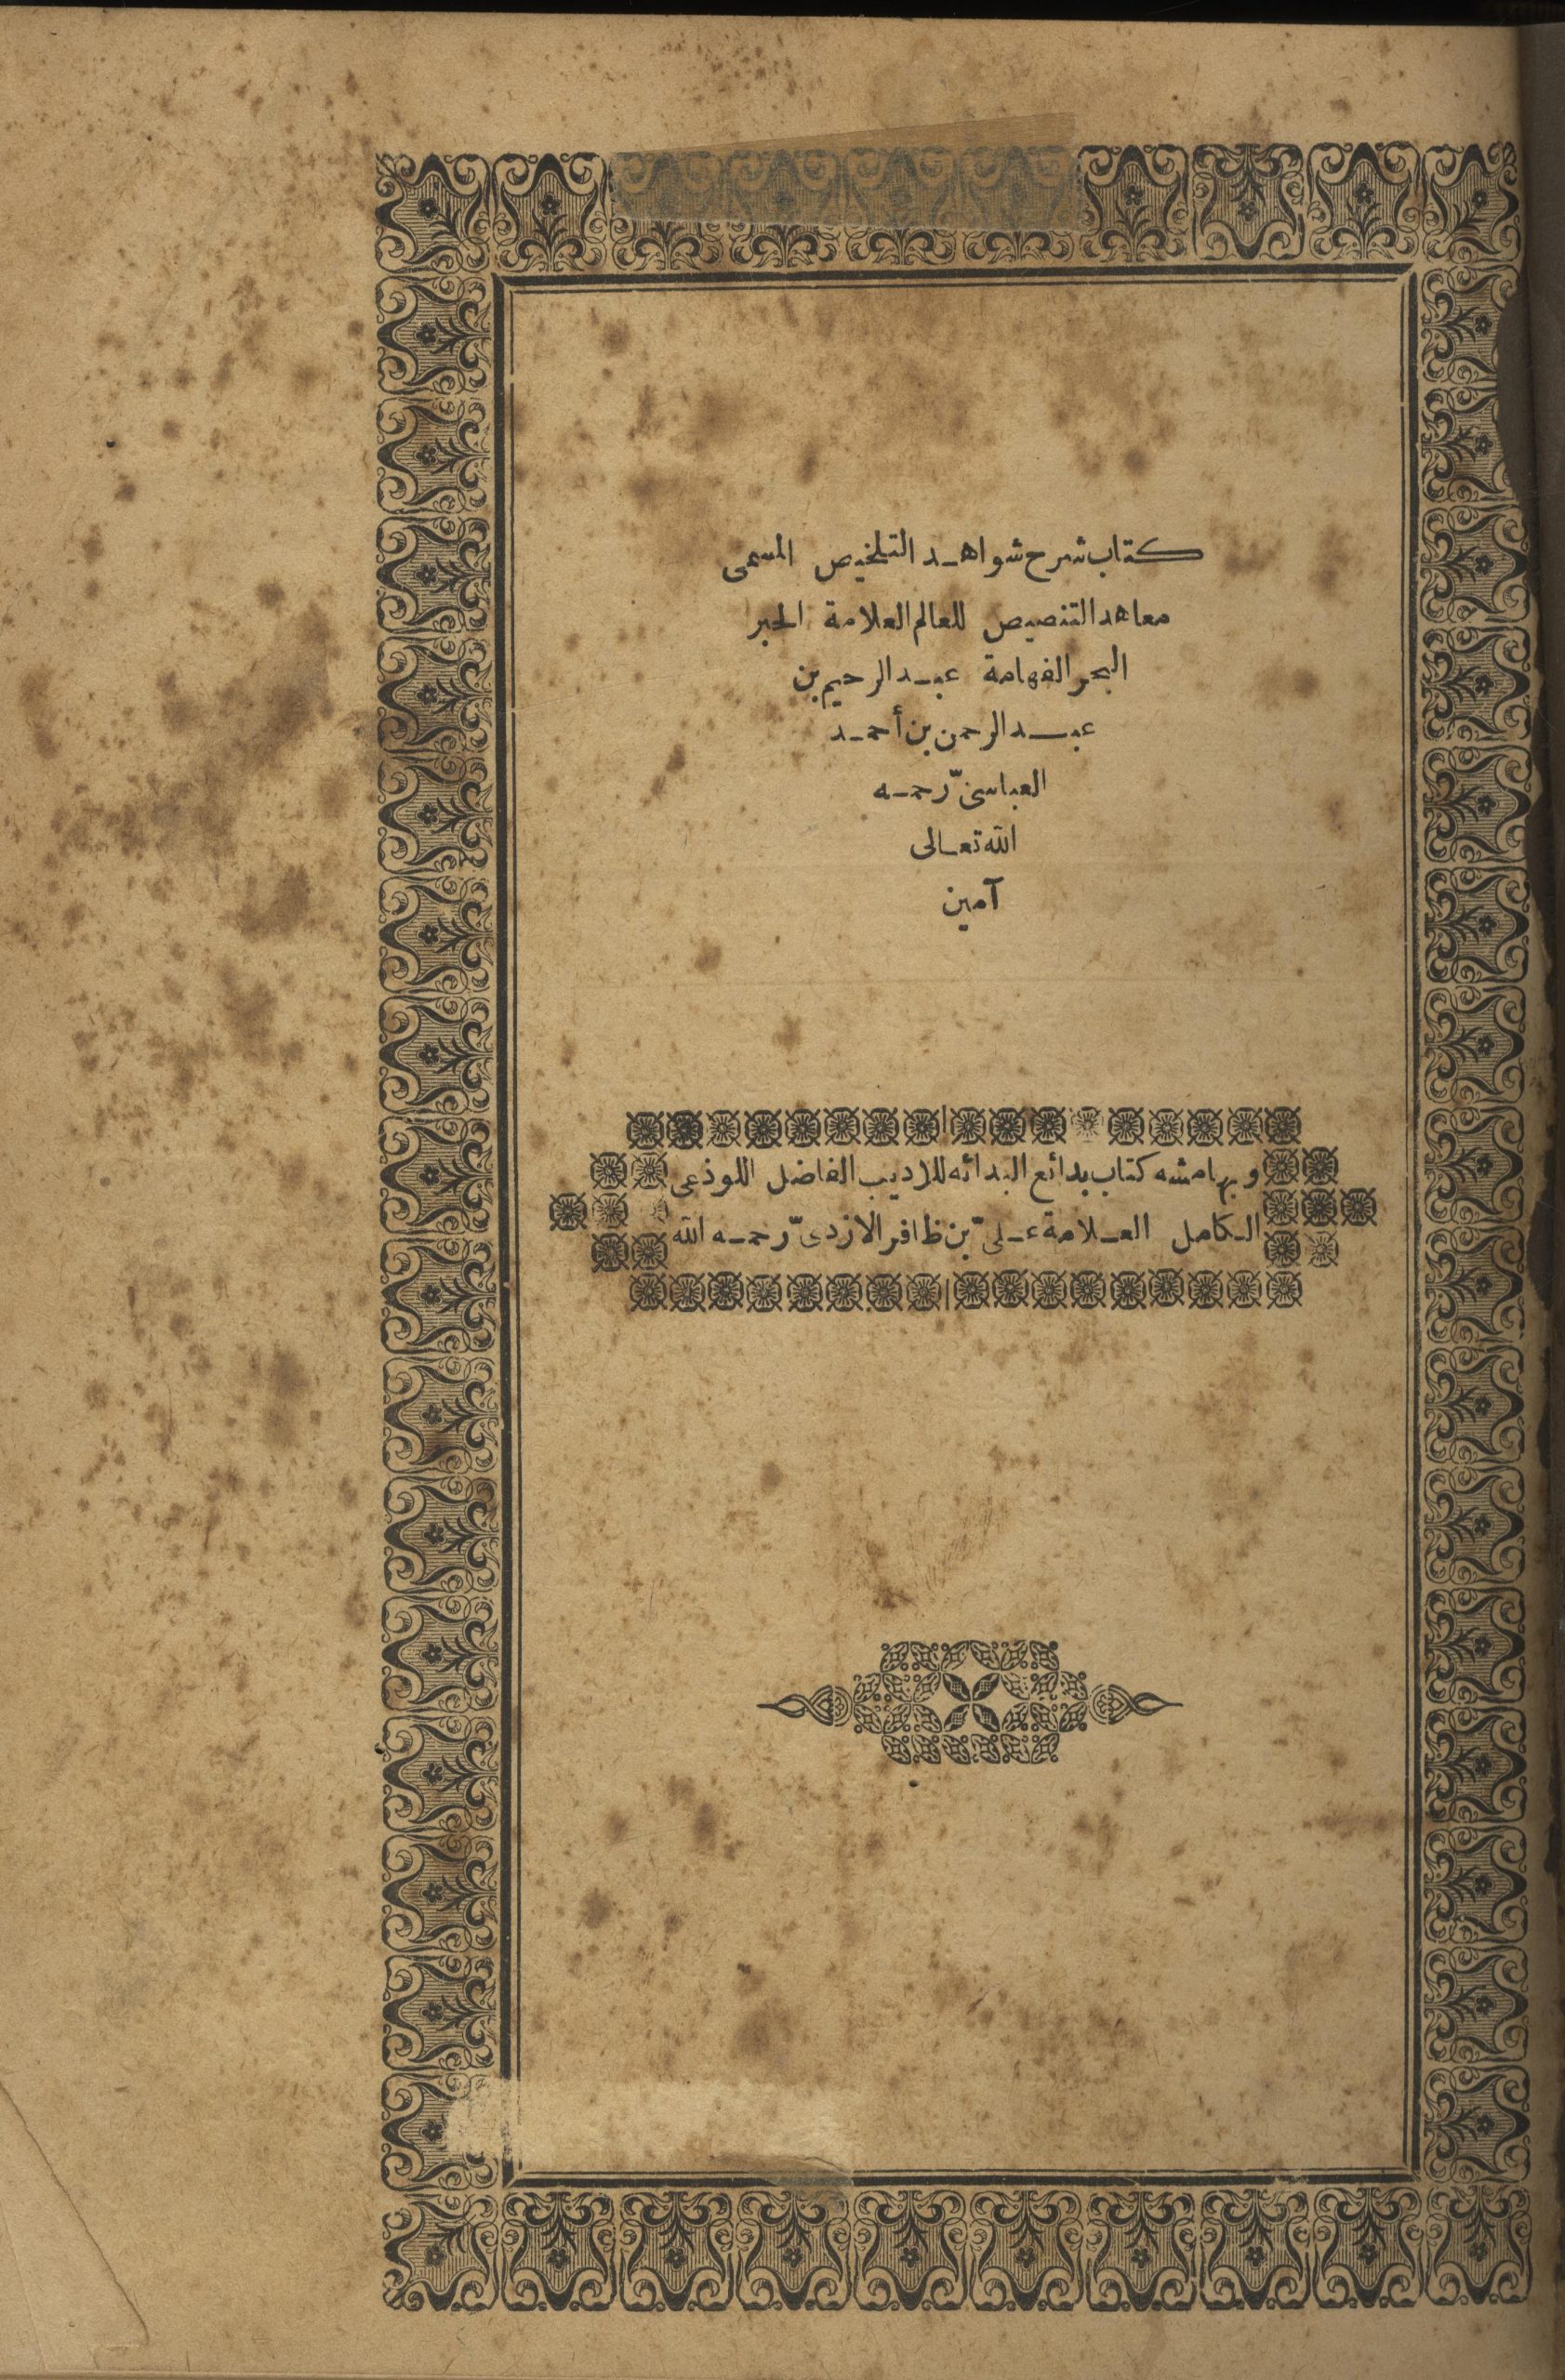 كتاب شرح شواهد التلخيص المسمى
معاهد التنصيص للعالم العلامة الحبر
البحر الفهامة عبد الرحيم بن
عبد الرحمن بن أحمد
العباسىّ رحمه
الله تعالى
آمين
وبهامشه كتاب بدائع البدائه للاديب الفاضل اللوذعى
الكامل العلامة علىّ بن ظافر الازدىّ رحمه الله